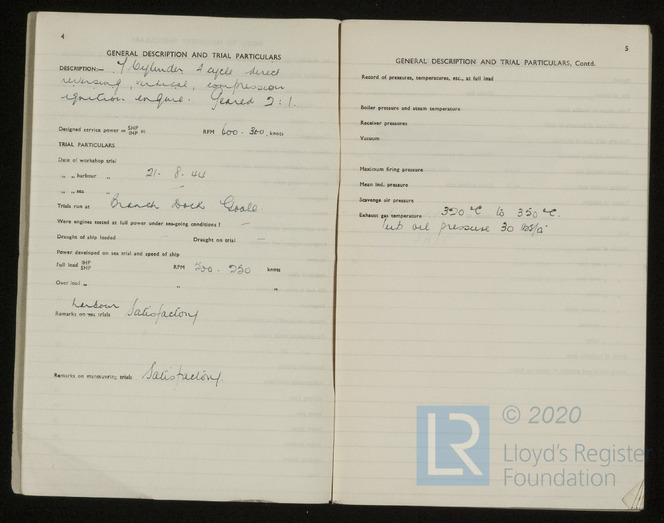 4
GENERAL DESCRIPTION AND TRIAL PARTICULARS
DESCRIPTION:— 7 Cylinder 2 cycle direct
reversing, vertical, compression
ignition engine. Geared 2:1.
Designed service power = SHP IHP at RPM 600 - 300, knots
TRIAL PARTICULARS
Date of workshop trial
„ „ harbour „ 21. 8. 44
„ „ sea —
Trials run at Branch Dock Goole.
Were engines tested at full power under sea-going conditions? —
Draught of ship loaded Draught on trial —
Power developed on sea trial and speed of ship
Full load IHP SHP RPM 500 - 250 knots
Over load „ „ „
harbour
Remarks on sea trials Satisfactory
Remarks on manœuvring trials Satisfactory.
5
GENERAL DESCRIPTION AND TRIAL PARTICULARS, Contd.
Record of pressures, temperatures, etc., at full load
Boiler pressure and steam temperature
Receiver pressures
Vacuum
Maximum firing pressure
Mean ind. pressure
Scavenge air pressure
Exhaust gas temperature 350 °C to 350 °C.
Lub oil pressure 30 lbs/□"
LR
© 2020
Lloyd's Register
Foundation